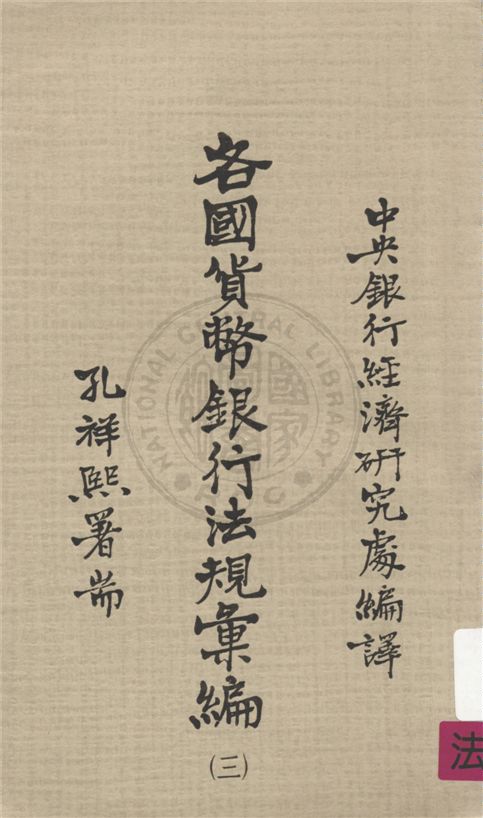 中央銀行經濟研究處編譯
各國貨幣銀行法規彙編
(三)
孔祥熙署耑
NATIONAL CENTRAL LIBRARY
法